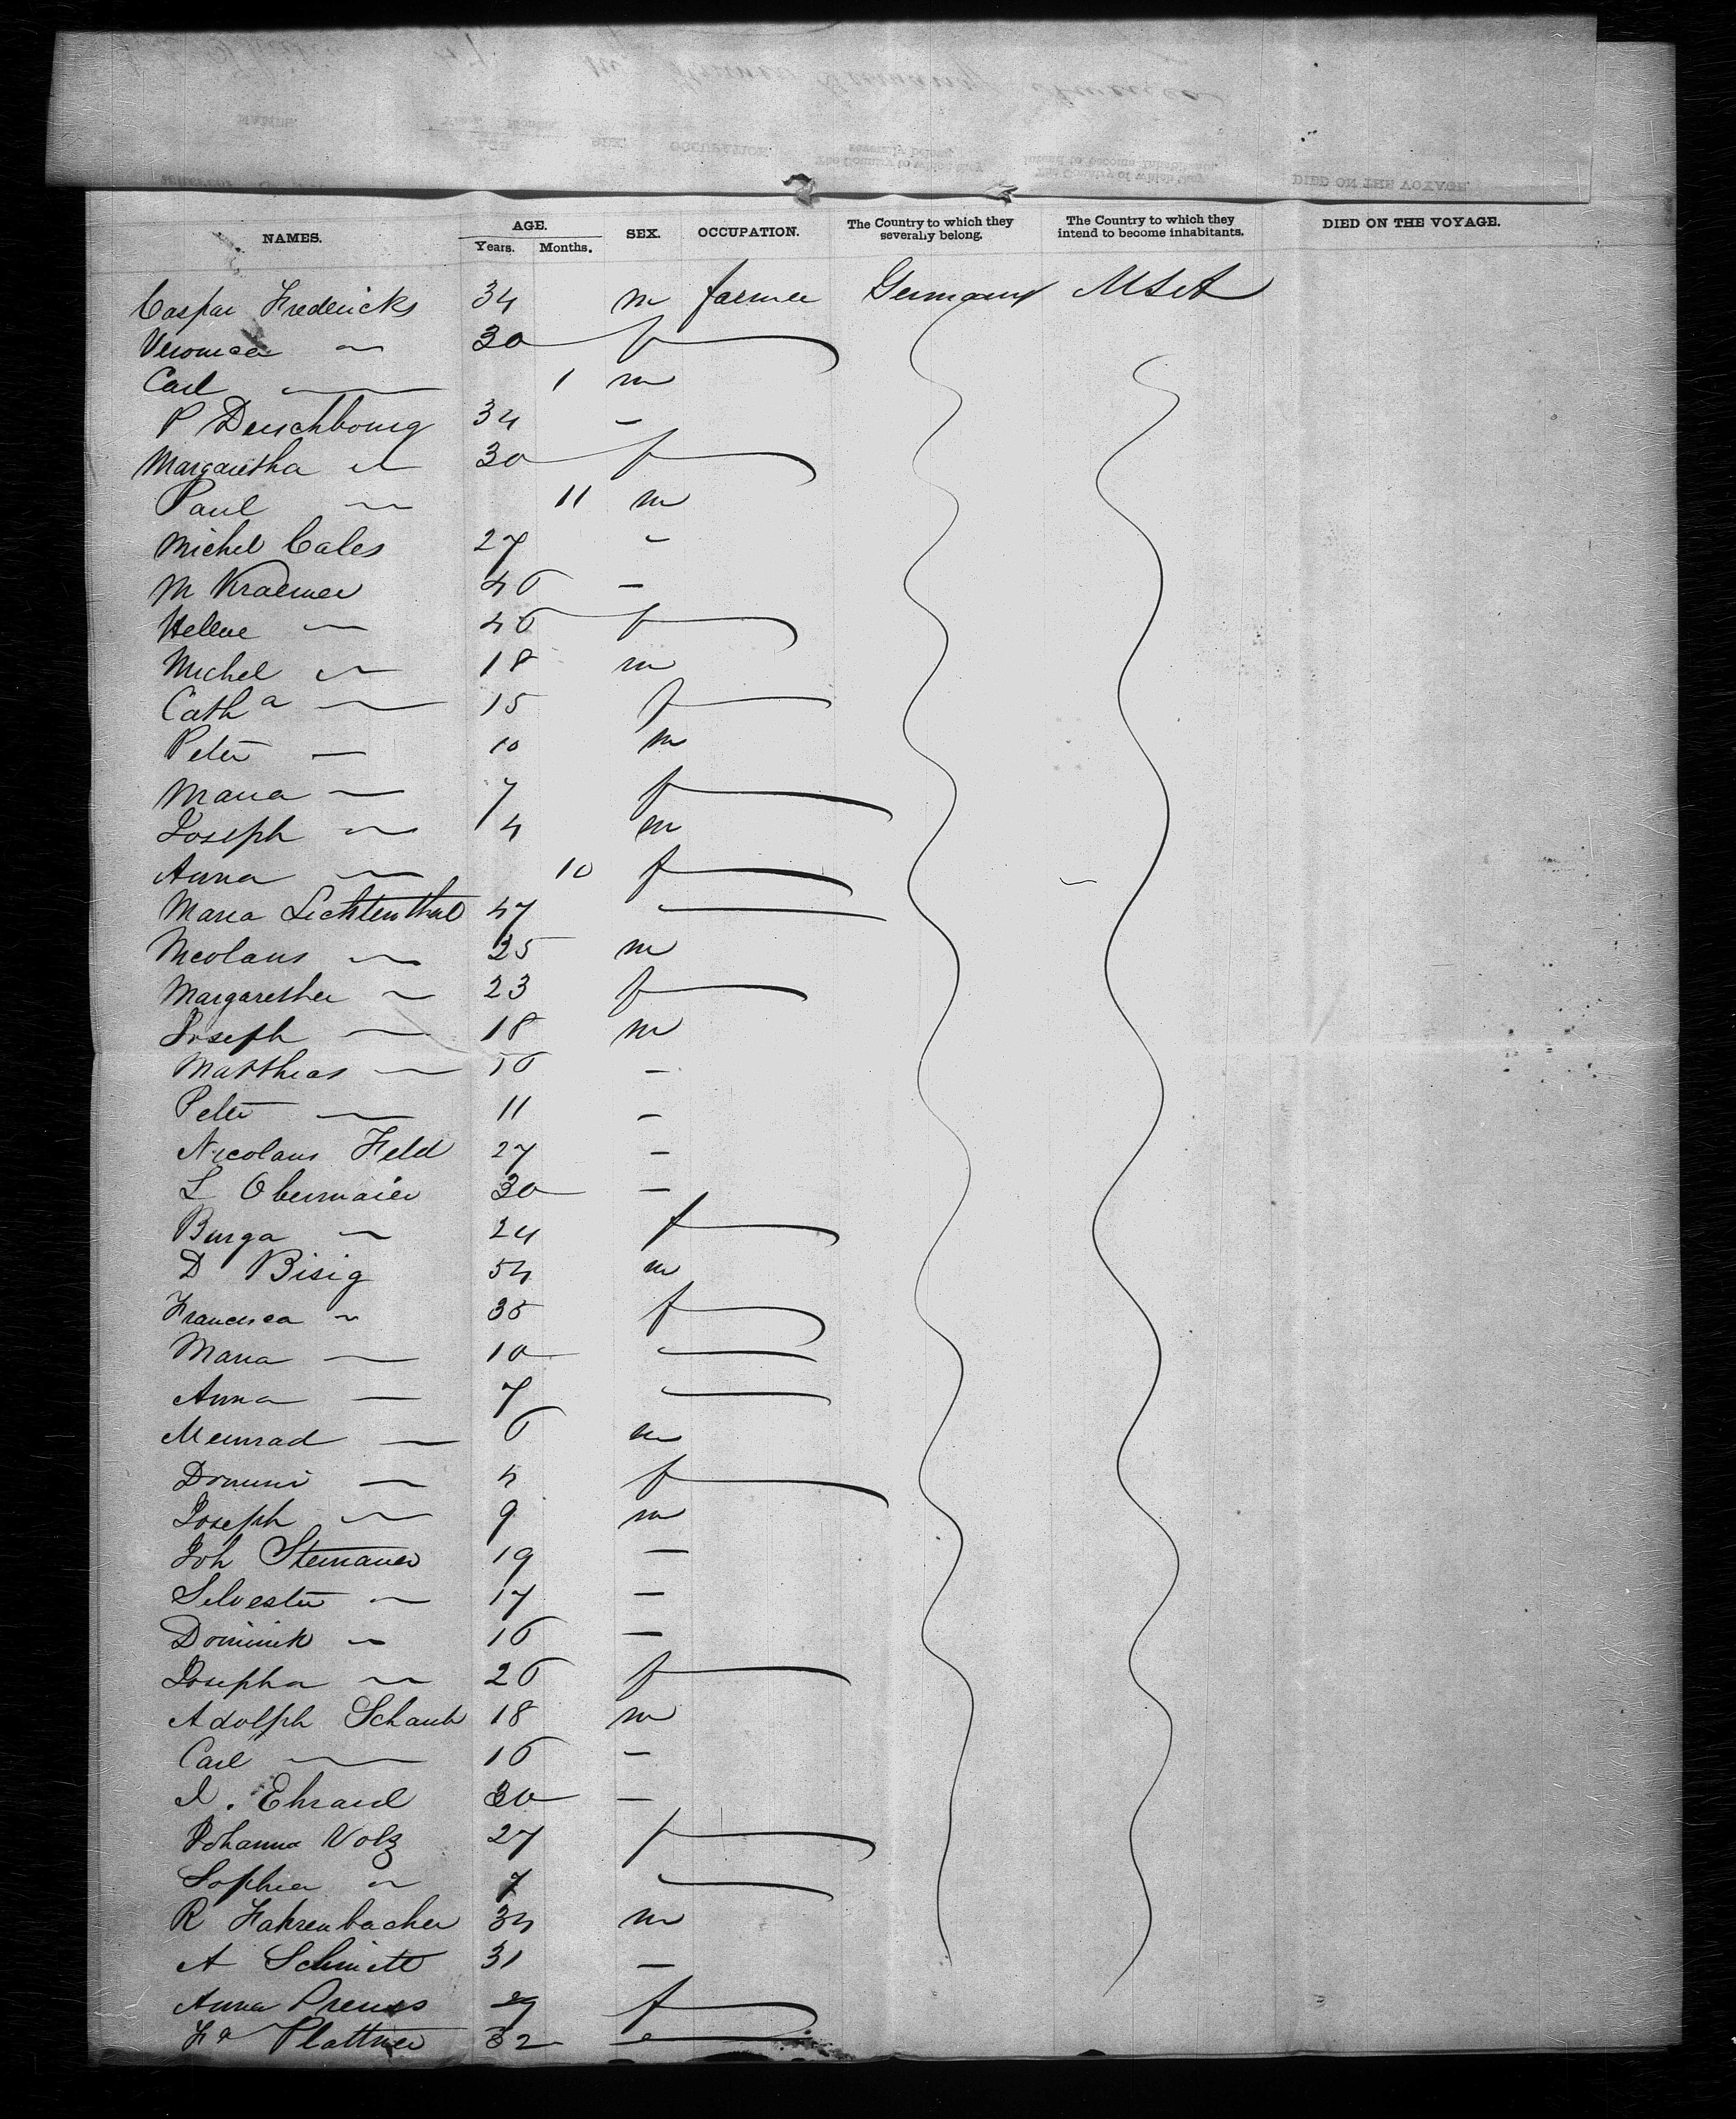 NAMES. AGE. SEX. OCCUPATION. The Country to which they severally belong. The Country to which they intend to become inhabitants. DIED ON THE VOYAGE.
Years. Months.
Caspar Fredericks 34 m farmer Germany USA
Veronica 〃 30 f
Carl 〃 1 m
P Deuschbourg 34 –
Margaretha 〃 30 f
Paul 〃 11 m
Michel Cales 27 –
M Kraemer 46 –
Helene 〃 46 f
Michel 〃 18 m
Cath a 〃 15 f
Peter 〃 10 m
Maria 〃 7 f
Joseph 〃 4 m
Anna 〃 10 f
Maria Lichtenthal 47 –
Nicolaus 〃 25 m
Margaretha 〃 23 f
Joseph 〃 18 m
Matthias 〃 16 –
Peter 〃 11 –
Nicolaus Feld 27 –
L Obermaier 30 –
Burga 〃 24 f
D Bisig 54 m
Francisca 〃 35 f
Maria 〃 10 –
Anna 〃 7 –
Meinrad 〃 6 m
Domini 〃 4 f
Joseph 〃 9 m
Joh Steinauer 19 –
Silvester 〃 17 –
Dominik 〃 16 –
Josepha 〃 26 f
Adolph Schaub 18 m
Carl 〃 16 –
J. Ehrard 30 –
Johanna Volz 27 f
Sophia 〃 7 –
R Fahrenbacher 34 m
A Schmitt 31 –
Anna Preuss f
Fa Plattner 32 –